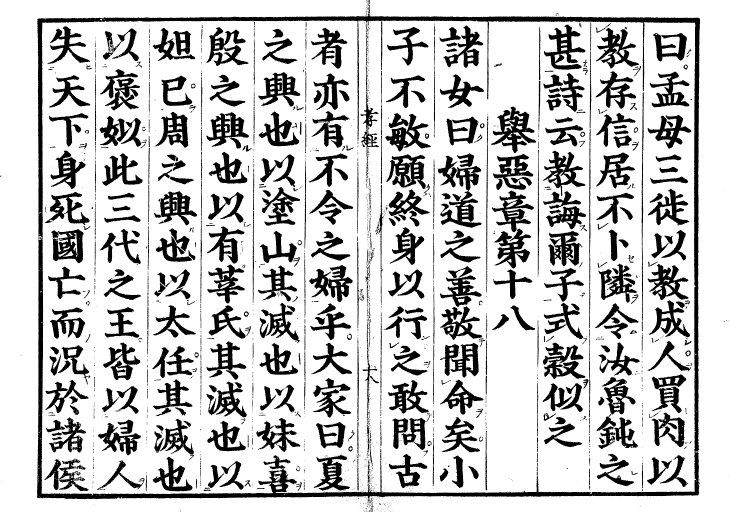 曰孟母三徙以教成人買肉以
教存信居不卜隣令汝魯鈍之
甚詩云教誨爾子式穀似之
舉惡章第十八
諸女曰婦道之善敬聞命矣小
子不敏願終身以行之敢問古
者亦有不令之婦乎大家曰夏
之興也以塗山其滅也以妹喜
殷之興也以有莘氏其滅也以
妲已周之興也以太任其滅也
以褒姒此三代之王皆以婦人
失天下身死國亡而況於諸侯